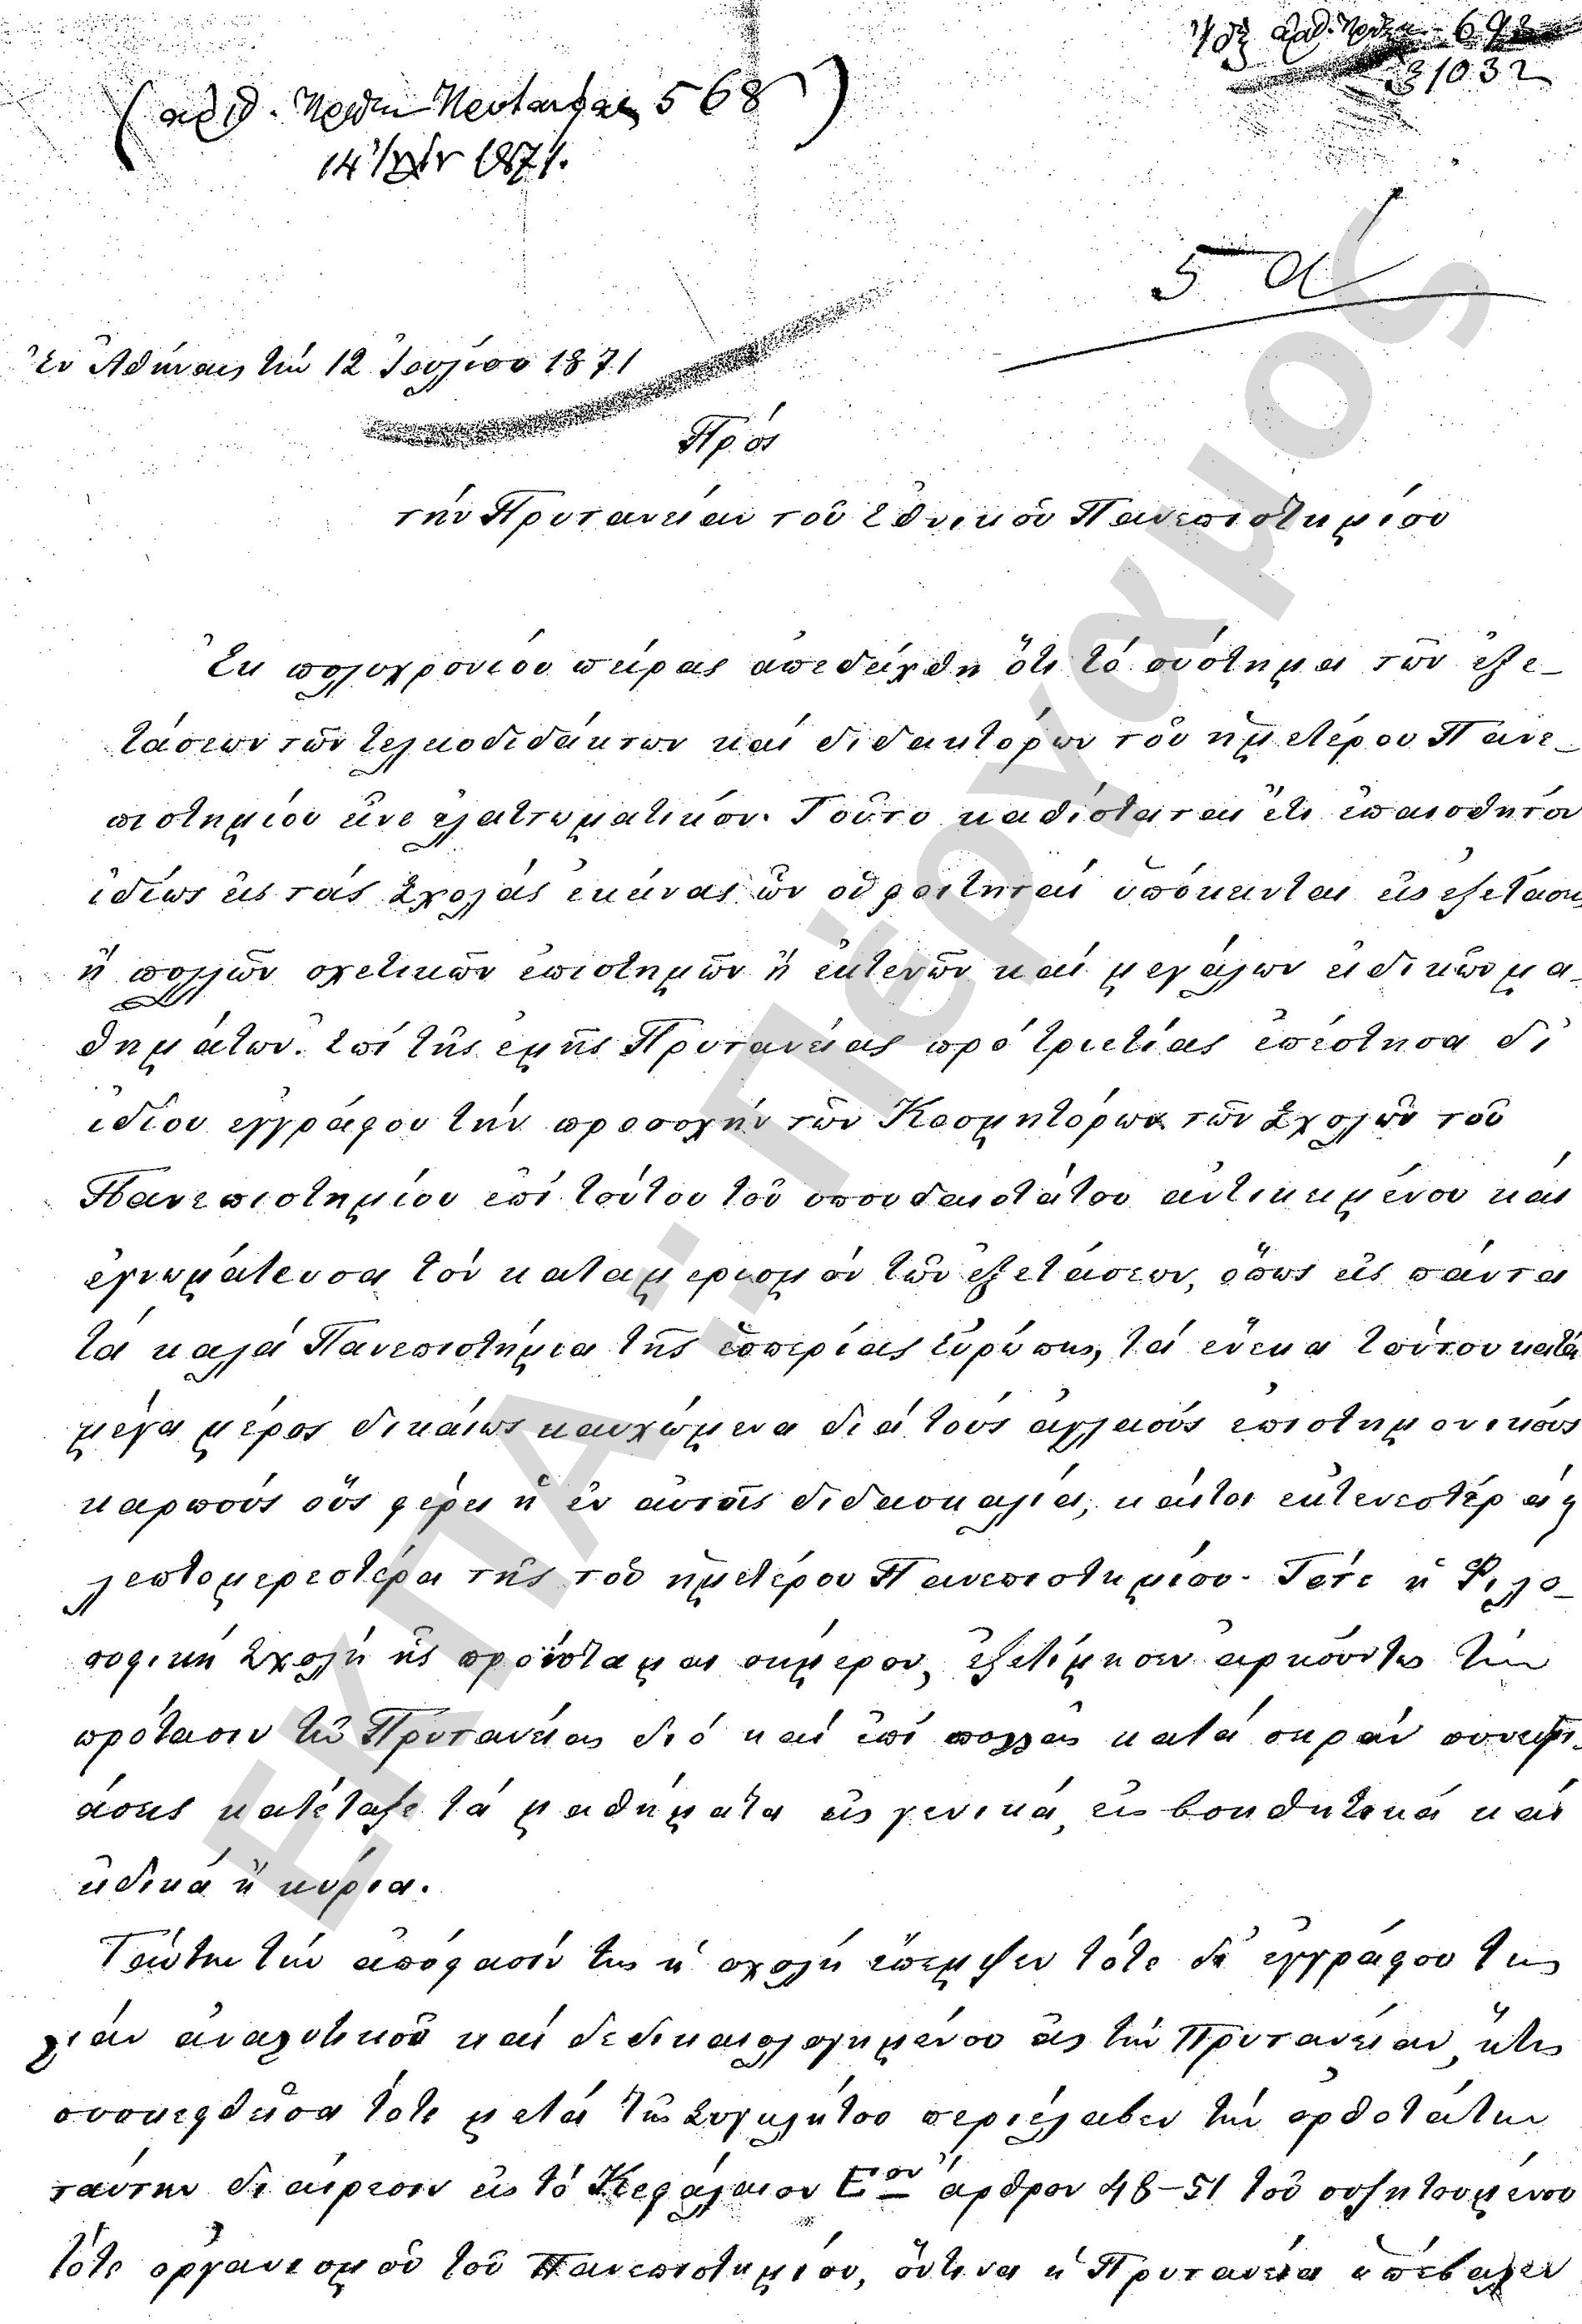 ἀριθ. Πρωτ. 692
31032
(ἀριθ. Πρωτ. Πρυτανείας 568)
14 1871.
5 α
Ἐν Ἀθήναις τὴν 12 Ἰουλίου 1871
Πρός
τήν Πρυτανείαν τοῦ Ἐθνικοῦ Πανεπιστημίου
Ἐκ πολυχρονίου πείρας ἀπεδείχθη ὅτι τό σύστημα τῶν ἐξε-
τάσεων τῶν τελειοδιδάκτων καί διδακτόρων τοῦ ἡμετέρου Πανε-
πιστημίου εἶνε ἐλαττωματικόν. Τοῦτο καθίσταται ἔτι ἐπαισθητόν
ἰδίως εἰς τάς Σχολάς ἐκείνας ὧν οἱ φοιτηταί ὑπόκεινται εἰς ἐξετάσεις
ἤ πολλῶν σχετικῶν ἐπιστημῶν ἤ ἐκτενῶν καί μεγάλων εἰδικῶν μα-
θημάτων. Ἐπί τῆς ἐμῆς Πρυτανείας πρό τριετίας ἐπέστησα δι'
ἰδίου ἐγγράφου τήν προσοχήν τῶν Κοσμητόρων τῶν Σχολῶν τοῦ
Πανεπιστημίου ἐπί τούτου τοῦ σπουδαιοτάτου ἀντικειμένου καί
ἐγνωμάτευσα τόν καταμερισμόν τῶν ἐξετάσεων, ὅπως εἰς πάντα
τά καλά Πανεπιστήμια τῆς ἑσπερίας Εὐρώπης, τά ἕνεκα τούτου κατά
μέγα μέρος δικαίως καυχώμενα διά τούς ἀγλαούς ἐπιστημονικούς
καρπούς οὕς φέρει ἡ ἐν αὐτοῖς διδασκαλία, καίτοι ἐκτενεστέρα καί
λεπτομερεστέρα τῆς τοῦ ἡμετέρου Πανεπιστημίου. Τότε ἡ Φιλο-
σοφική Σχολή ἧς προΐσταμαι σήμερον, ἐξετίμησεν ἀρκούντως τήν
πρότασιν τῆς Πρυτανείας διό καί ἐπί πολλάς κατά σειράν συνεδρι-
άσεις κατέταξε τά μαθήματα εἰς γενικά, εἰς βοηθητικά καί
εἰδικά ἤ κύρια.
Ταύτην τήν ἀπόφασίν της ἡ σχολή ἔπεμψεν τότε δι' ἐγγράφου της
λίαν ἀναλυτικοῦ καί δεδικαιολογημένου εἰς τήν Πρυτανείαν, ἥτις
συσκεφθεῖσα τότε μετά τῆς Συγκλήτου περιέλαβεν τήν ὀρθοτάτην
ταύτην διαίρεσιν εἰς τό Κεφάλαιον Εον ἄρθρον 48–51 τοῦ συζητουμένου
τότε ὀργανισμοῦ τοῦ Πανεπιστημίου, ὅντινα ἡ Πρυτανεία ὑπέβαλεν
ΕΚΠΑ - Ιστορικό